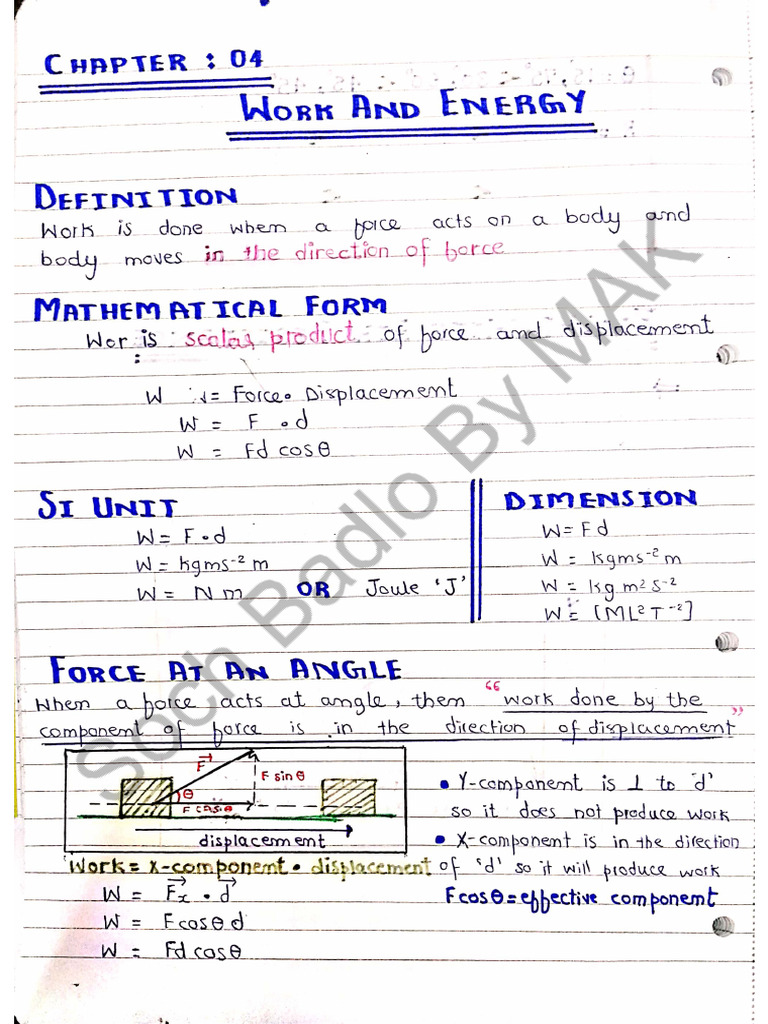 CHAPTER : 04
WORK AND ENERGY
DEFINITION
Work is done when a force acts on a body and
body moves in the direction of force
MATHEMATICAL FORM
Wor is scalar product of force and displacement
:
W = Force • Displacement
W = F • d
W = Fd cosθ
SI UNIT
W = F • d
W = kgms⁻² m
W = Nm OR Joule 'J'
DIMENSION
W = Fd
W = kgms⁻² m
W = kg m² s⁻²
W = [ML² T⁻²]
FORCE AT AN ANGLE
When a force acts at angle, then “work done by the
component of force is in the direction of displacement”
F⃗
F sinθ
θ
F cosθ
displacement
Work = x-component • displacement
W = F⃗x • d⃗
W = Fcosθ d
W = Fd cosθ
• Y-component is ⊥ to 'd'
so it does not produce work
• X-component is in the direction
of 'd' so it will produce work
Fcosθ = effective component
Soch Badlo By MAK